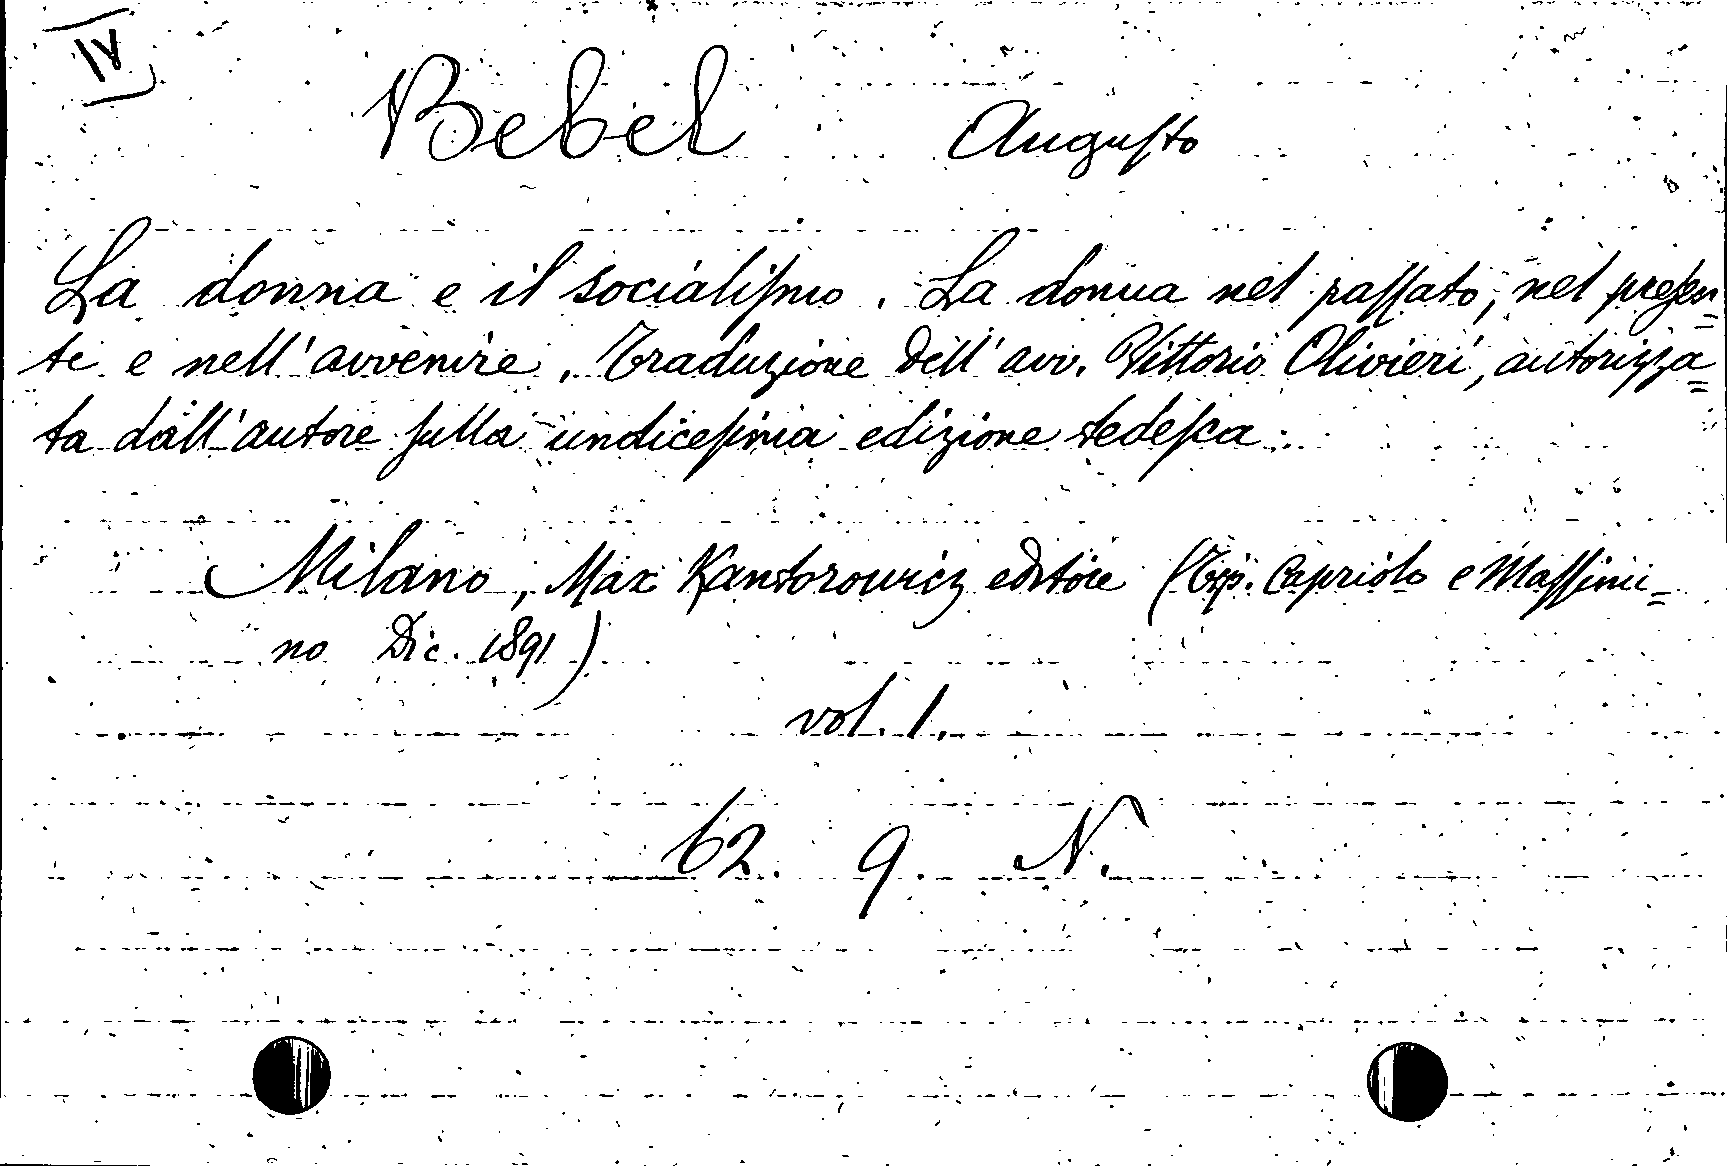 IV
Bebel Augusto
La donna e il socialismo. La donna nel passato, nel presen=
te e nell'avvenire. Traduzione dell'avv. Vittorio Olivieri, autorizza=
ta dall'autore sulla undicesima edizione tedesca.
Milano, Max Kantorowicz editore (Tip. Capriolo e Massimi=
no Dic. 1891)
vol. 1.
62. 9. N.